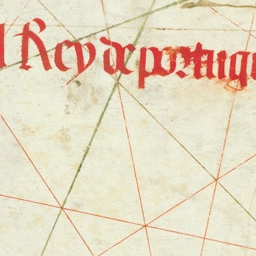 l Rey de portugu